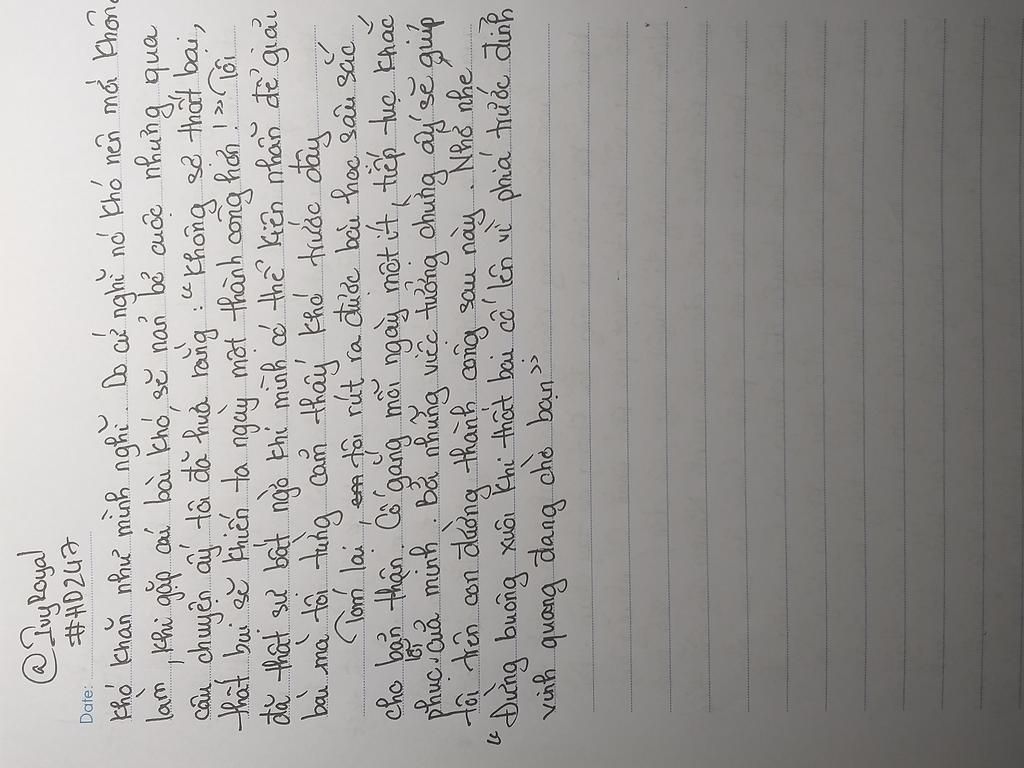 @IvyRoyal
#HD247
Date:
khó khăn như mình nghĩ. Do cứ nghĩ nó khó nên mới không
làm, khi gặp cái bài khó sẽ nản bỏ cuộc nhưng qua
câu chuyện ấy tôi đã hứa rằng: "không sợ thất bại,
thất bại sẽ khiến ta ngày một thành công hơn!" Tôi
đã thật sự bất ngờ khi mình có thể kiên nhẫn để giải
bài mà tôi từng cảm thấy khó trước đây
Tóm lại, tôi rút ra được bài học sâu sắc
cho bản thân. Cố gắng mỗi ngày một ít, tiếp tục khắc
phục lỗi của mình. Bởi những việc tưởng chừng ấy sẽ giúp
tôi trên con đường thành công sau này. Nhớ nhe
"Đừng buông xuôi khi thất bại cố lên vì phía trước đỉnh
vinh quang đang chờ bạn"